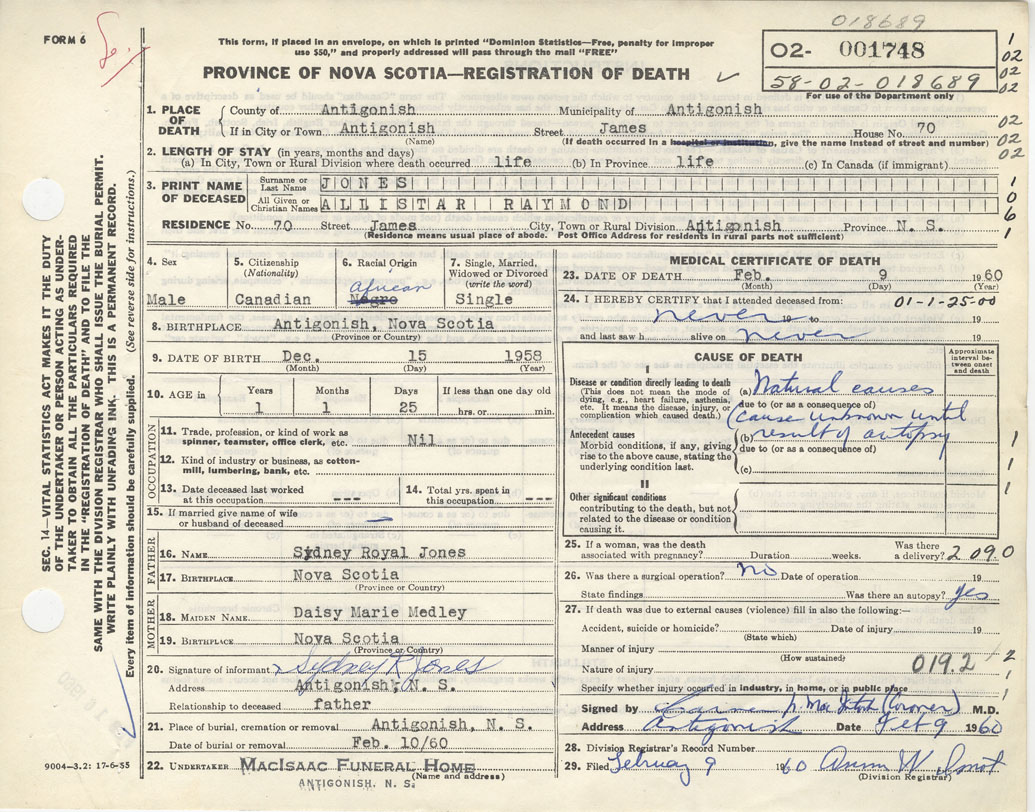 018689
FORM 6
This form, if placed in an envelope, on which is printed "Dominion Statistics—Free, penalty for improper
use $50," and properly addressed will pass through the mail "FREE"
O2- 001748
58-02-018689
For use of the Department only
PROVINCE OF NOVA SCOTIA—REGISTRATION OF DEATH
1. PLACE OF DEATH County of Antigonish Municipality of Antigonish
If in City or Town Antigonish Street James House No. 70
(Name) (If death occurred in a hospital or institution, give the name instead of street and number)
2. LENGTH OF STAY (in years, months and days)
(a) In City, Town or Rural Division where death occurred life (b) In Province life (c) In Canada (if immigrant)
3. PRINT NAME OF DECEASED Surname or Last Name JONES
All Given or Christian Names ALLISTAR RAYMOND
RESIDENCE No. 70 Street James City, Town or Rural Division Antigonish Province N. S.
(Residence means usual place of abode. Post Office Address for residents in rural parts not sufficient)
1
02
02
02
02
02
02
1
0
6
1
SEC. 14—VITAL STATISTICS ACT MAKES IT THE DUTY
OF THE UNDERTAKER OR PERSON ACTING AS UNDER-
TAKER TO OBTAIN ALL THE PARTICULARS REQUIRED
IN THE "REGISTRATION OF DEATH" AND TO FILE THE
SAME WITH THE DIVISION REGISTRAR WHO SHALL ISSUE THE BURIAL PERMIT.
WRITE PLAINLY WITH UNFADING INK. THIS IS A PERMANENT RECORD.
Every item of information should be carefully supplied. (See reverse side for instructions.)
4. Sex Male
5. Citizenship (Nationality) Canadian
6. Racial Origin African Negro
7. Single, Married, Widowed or Divorced (write the word) Single
8. BIRTHPLACE Antigonish, Nova Scotia
(Province or Country)
9. DATE OF BIRTH Dec. 15 1958
(Month) (Day) (Year)
10. AGE in Years Months Days If less than one day old
1 1 25 hrs. or min.
OCCUPATION
11. Trade, profession, or kind of work as
spinner, teamster, office clerk, etc. Nil
12. Kind of industry or business, as cotton-
mill, lumbering, bank, etc.
13. Date deceased last worked
at this occupation ---
14. Total yrs. spent in
this occupation ---
15. If married give name of wife
or husband of deceased —
FATHER
16. NAME Sydney Royal Jones
17. BIRTHPLACE Nova Scotia
(Province or Country)
MOTHER
18. MAIDEN NAME Daisy Marie Medley
19. BIRTHPLACE Nova Scotia
(Province or Country)
20. Signature of informant Sydney R Jones
Address Antigonish, N. S.
Relationship to deceased father
21. Place of burial, cremation or removal Antigonish, N. S.
Date of burial or removal Feb. 10/60
22. UNDERTAKER MACISAAC FUNERAL HOME
(Name and address)
ANTIGONISH, N. S.
9004-3.2: 17-6-55
MEDICAL CERTIFICATE OF DEATH
23. DATE OF DEATH Feb. 9 1960
(Month) (Day) (Year)
24. I HEREBY CERTIFY that I attended deceased from: 01-1-25-00
never 19 to 19
and last saw h alive on never 19
CAUSE OF DEATH
Approximate interval between onset and death
I
Disease or condition directly leading to death
(This does not mean the mode of
dying, e.g., heart failure, asthenia,
etc. It means the disease, injury, or
complication which caused death.)
(a) Natural causes
due to (or as a consequence of)
(cause unknown until
Antecedent causes
Morbid conditions, if any, giving
rise to the above cause, stating the
underlying condition last.
(b) result of autopsy
due to (or as a consequence of)
(c)
II
Other significant conditions
contributing to the death, but not
related to the disease or condition
causing it.
1
1
1
25. If a woman, was the death Was there
associated with pregnancy? Duration weeks. a delivery? 2 09.0
26. Was there a surgical operation? no Date of operation 19
State findings Was there an autopsy? yes
27. If death was due to external causes (violence) fill in also the following:—
Accident, suicide or homicide? Date of injury 19
(State which)
Manner of injury
(How sustained)
Nature of injury 019.2 1 2
Specify whether injury occurred in industry, in home, or in public place 1
Signed by (Coroner) M.D.
Address Antigonish Date Feb 9 1960
28. Division Registrar's Record Number
29. Filed February 9 1960
(Division Registrar)